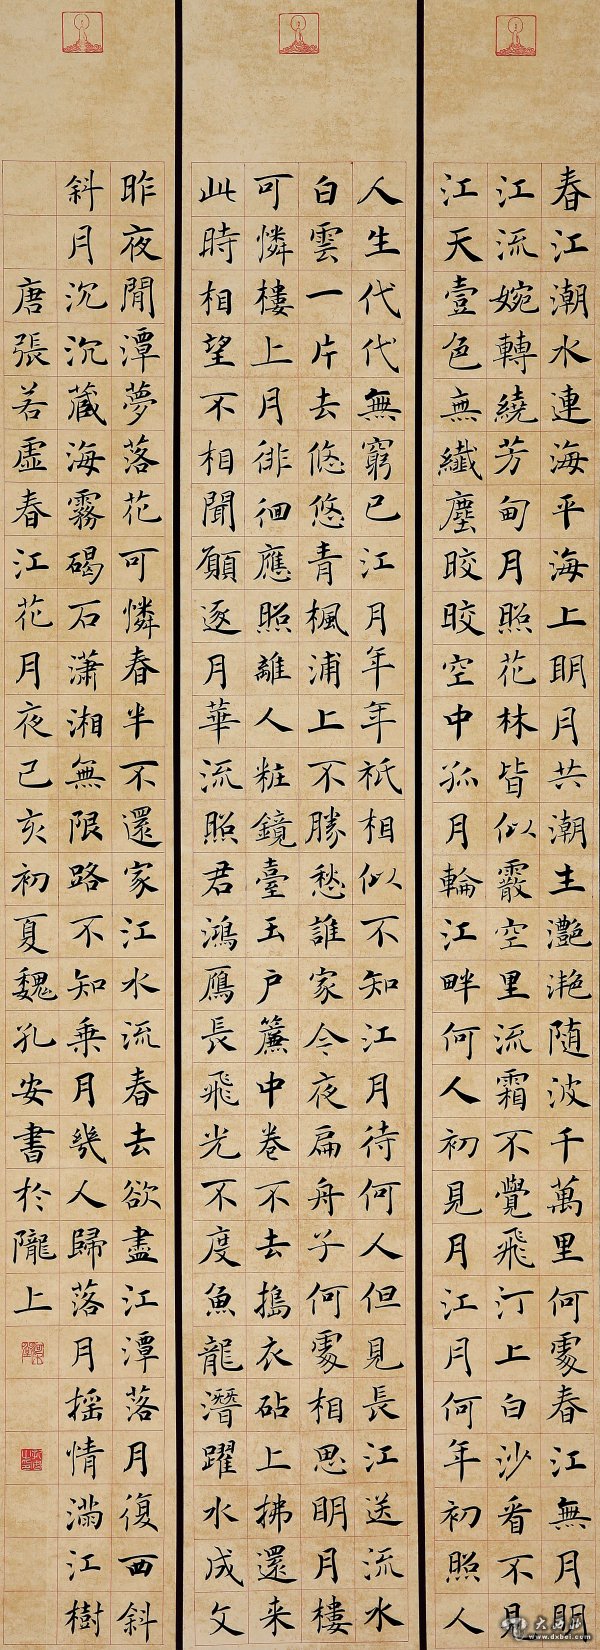 春江潮水連海平海上明月共潮生灧滟随波千萬里何處春江無月明
江流婉轉繞芳甸月照花林皆似霰空里流霜不覺飛汀上白沙看不見
江天壹色無纖塵皎皎空中孤月輪江畔何人初見月江月何年初照人
人生代代無窮已江月年年祇相似不知江月待何人但見長江送流水
白雲一片去悠悠青楓浦上不勝愁誰家今夜扁舟子何處相思明月樓
可憐樓上月徘徊應照離人粧鏡臺玉户簾中卷不去搗衣砧上拂還来
此時相望不相聞願逐月華流照君鴻鴈長飛光不度魚龍潛躍水成文
昨夜閒潭夢落花可憐春半不還家江水流春去欲盡江潭落月復西斜
斜月沉沉藏海霧碣石瀟湘無限路不知乘月幾人歸落月摇情滿江樹
唐張若虚春江花月夜己亥初夏魏孔安書於隴上
大西北
www.dxbei.com